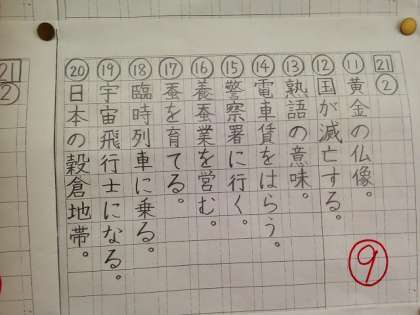 21
②
⑪黄金の仏像。
⑫国が滅亡する。
⑬熟語の意味。
⑭電車賃をはらう。
⑮警察署に行く。
⑯養蚕業を営む。
⑰蚕を育てる。
⑱臨時列車に乗る。
⑲宇宙飛行士になる。
⑳日本の穀倉地帯。
9
21
②